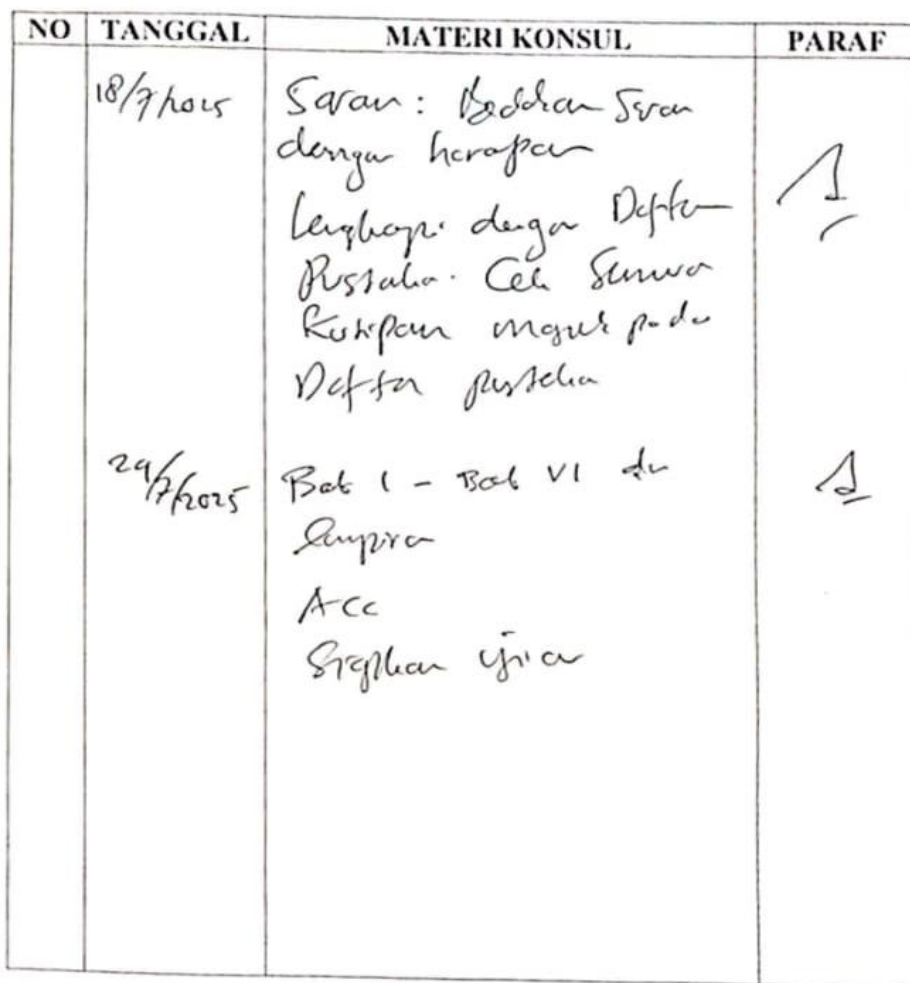 NO TANGGAL MATERI KONSUL PARAF
18/7/2025 Saran : Bedakan Saran
dengan harapan
Lengkapi dengan Daftar
Pustaka. Cek Semua
Kutipan masuk pada
Daftar pustaka
29/7/2025 Bab I - Bab VI dan
lampiran
Acc
Siapkan ujian